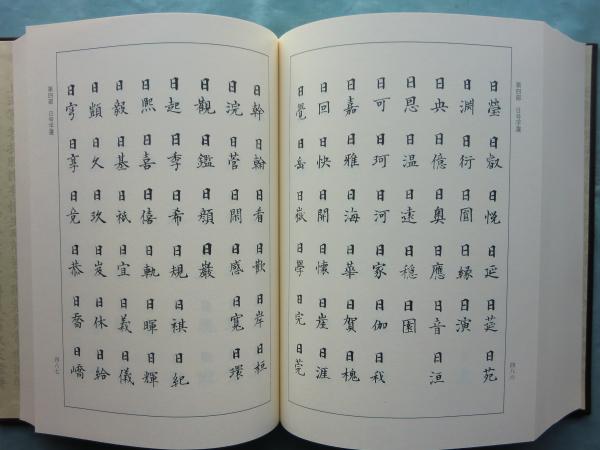 第四部 日号字選
日瑩 日叡 日悦 日延 日莚 日苑
日淵 日衍 日圓 日縁 日演
日央 日億 日奥 日應 日音 日洹
日恩 日温 日遠 日穏 日園
日可 日珂 日河 日家 日伽 日我
日嘉 日雅 日海 日華 日賀 日槐
日回 日快 日開 日懐 日崖 日涯
日覺 日岳 日嶽 日學 日完 日莞
四八六
第四部 日号字選
日幹 日翰 日看 日歡 日岸 日桓
日浣 日菅 日閑 日感 日寛 日環
日觀 日鑑 日顔 日巖
日起 日季 日希 日規 日祺 日紀
日熙 日喜 日僖 日軌 日暉 日輝
日毅 日基 日祇 日宜 日義 日儀
日顗 日久 日玖 日岌 日休 日給
日穹 日享 日竟 日恭 日喬 日嶠
四八七